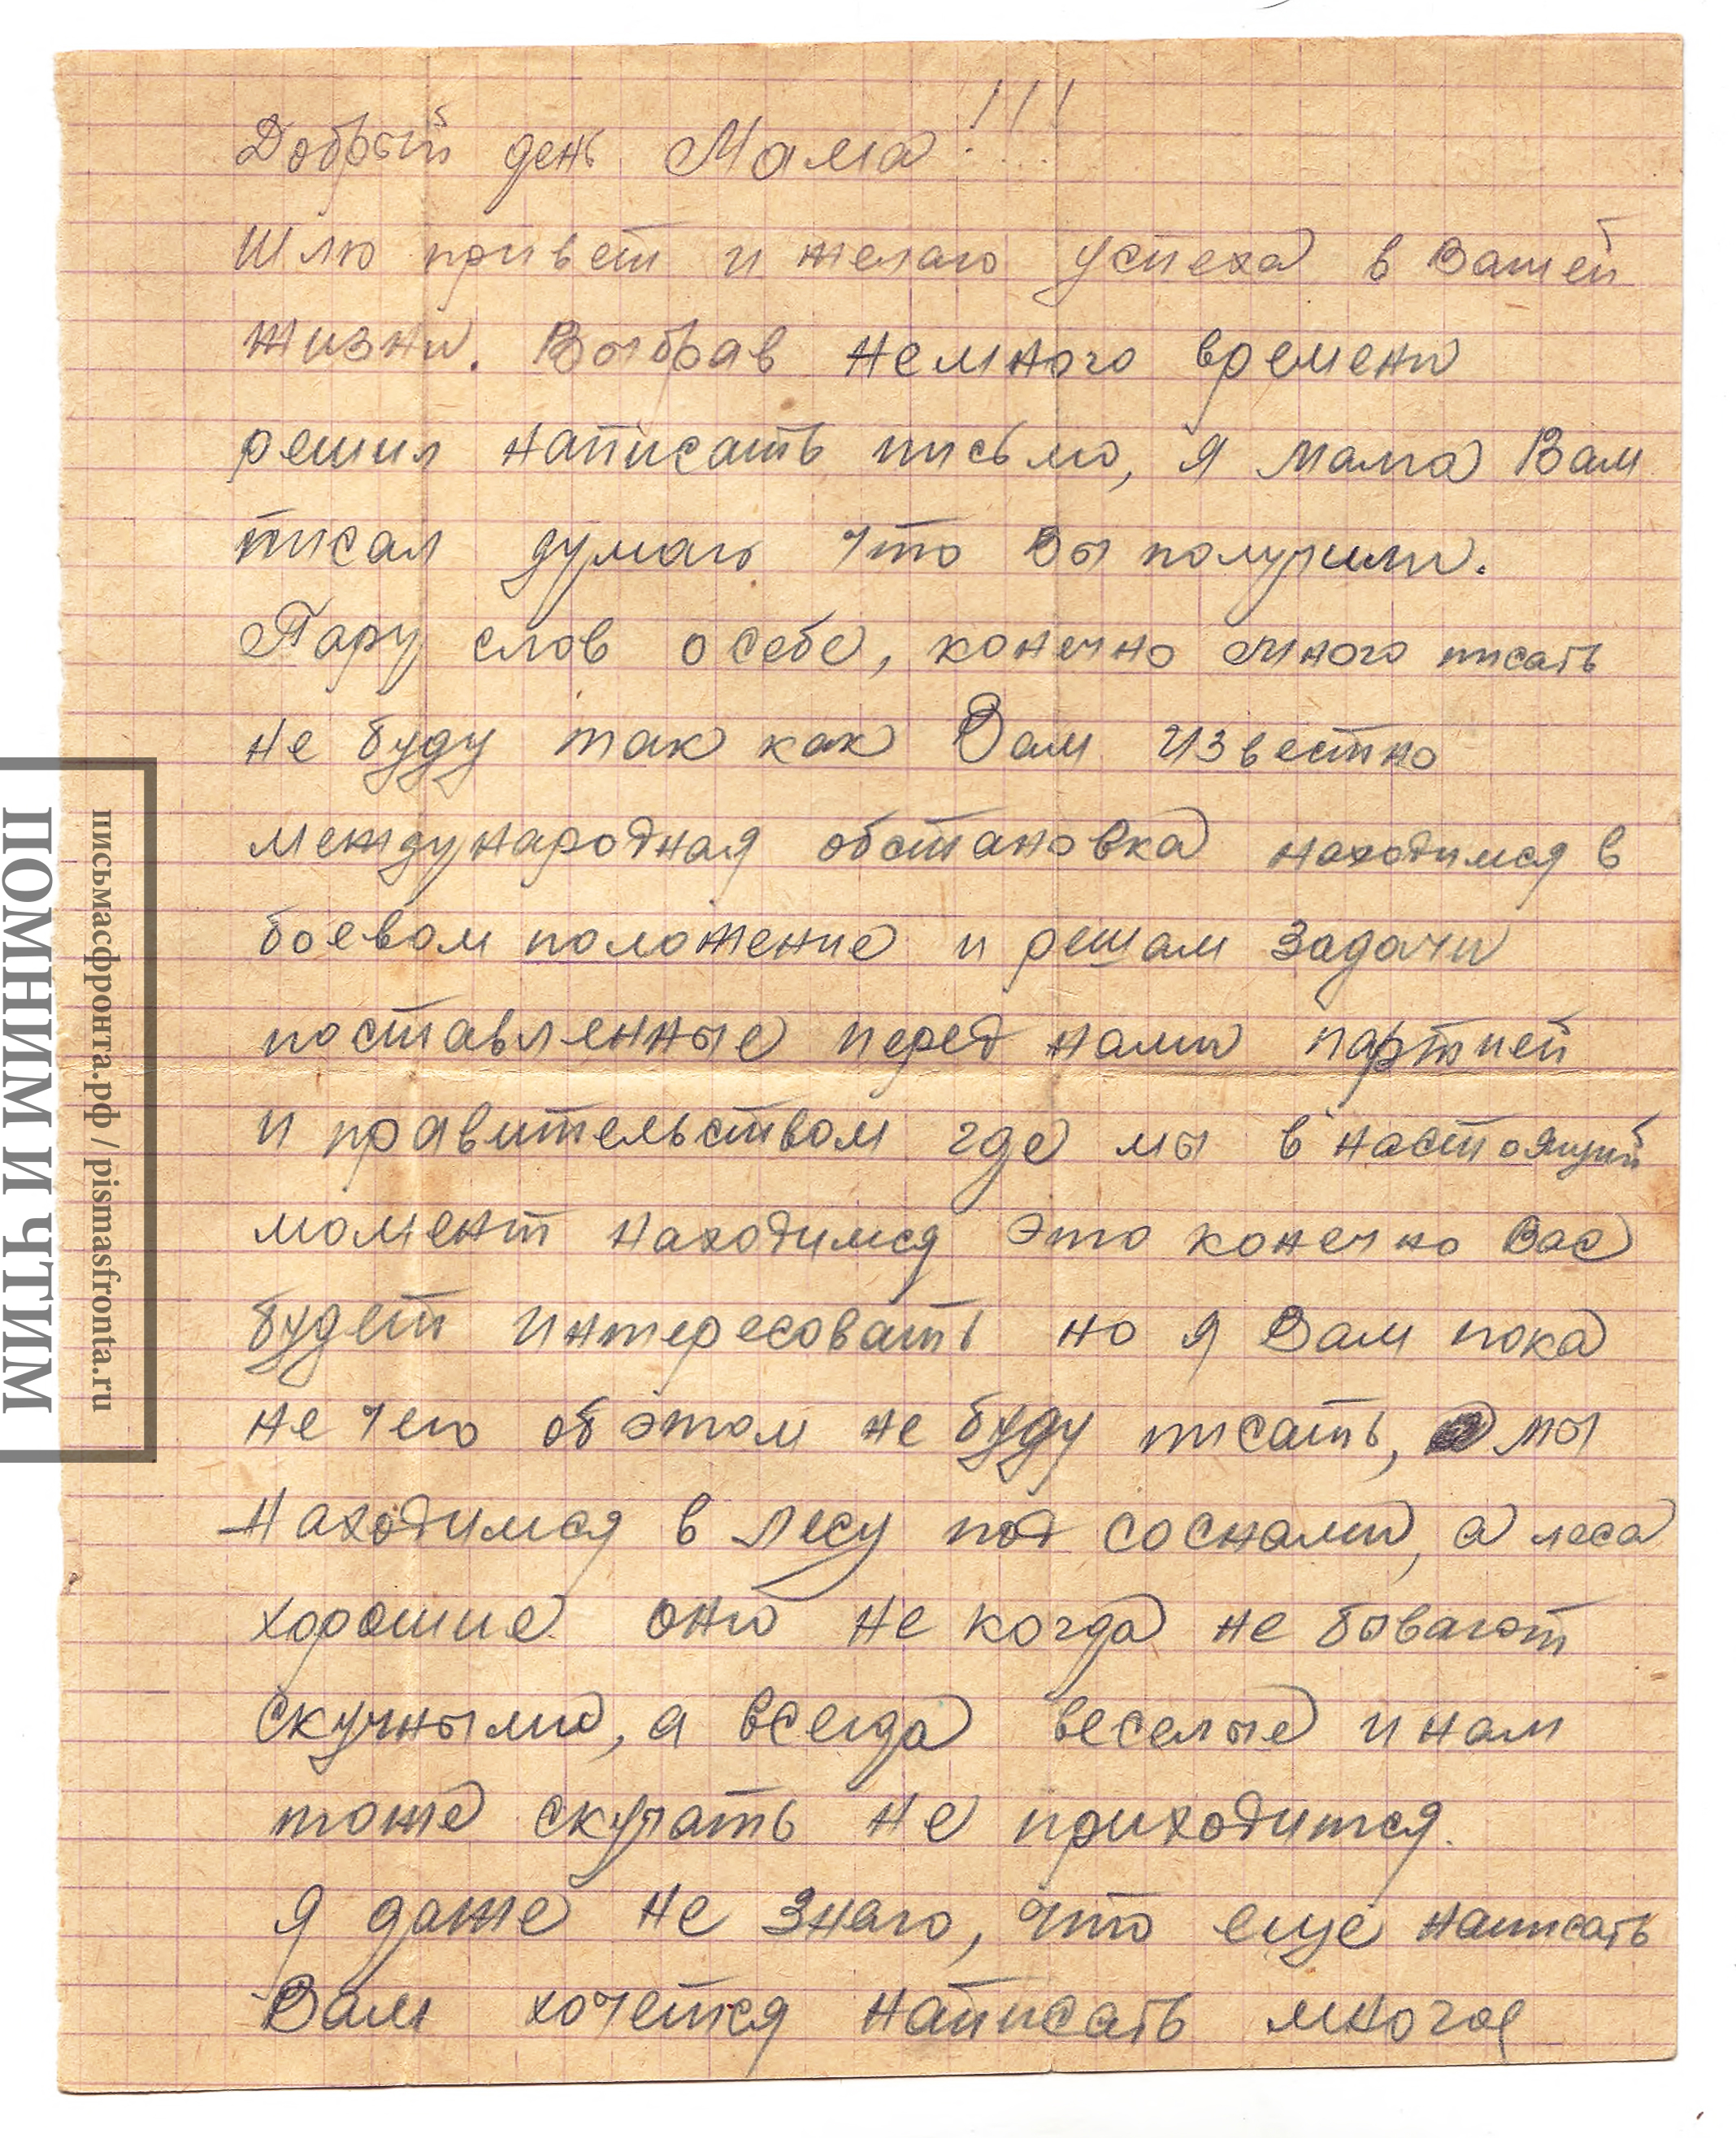 Добрый день Мама!!!
Шлю привет и желаю успеха в Вашей
жизни. Выбрав немного времени
решил написать письмо, я мама Вам
писал думаю что Вы получили.
Пару слов о себе, конечно много писать
не буду так как Вам известно
международная обстановка находимся в
боевом положение и решам задачи
поставленные перед нами партией
и правительством где мы в настоящий
момент находимся это конечно Вас
будет интересовать но я Вам пока
не чего об этом не буду писать, мы
находимся в лесу под соснами, а леса
хорошие они не когда не бывают
скучными, а всегда веселые и нам
тоже скучать не приходится.
Я даже не знаю, что еще написать
Вам хочется написать многое
письмасфронта.рф / pismasfronta.ru
ПОМНИМ И ЧТИМ